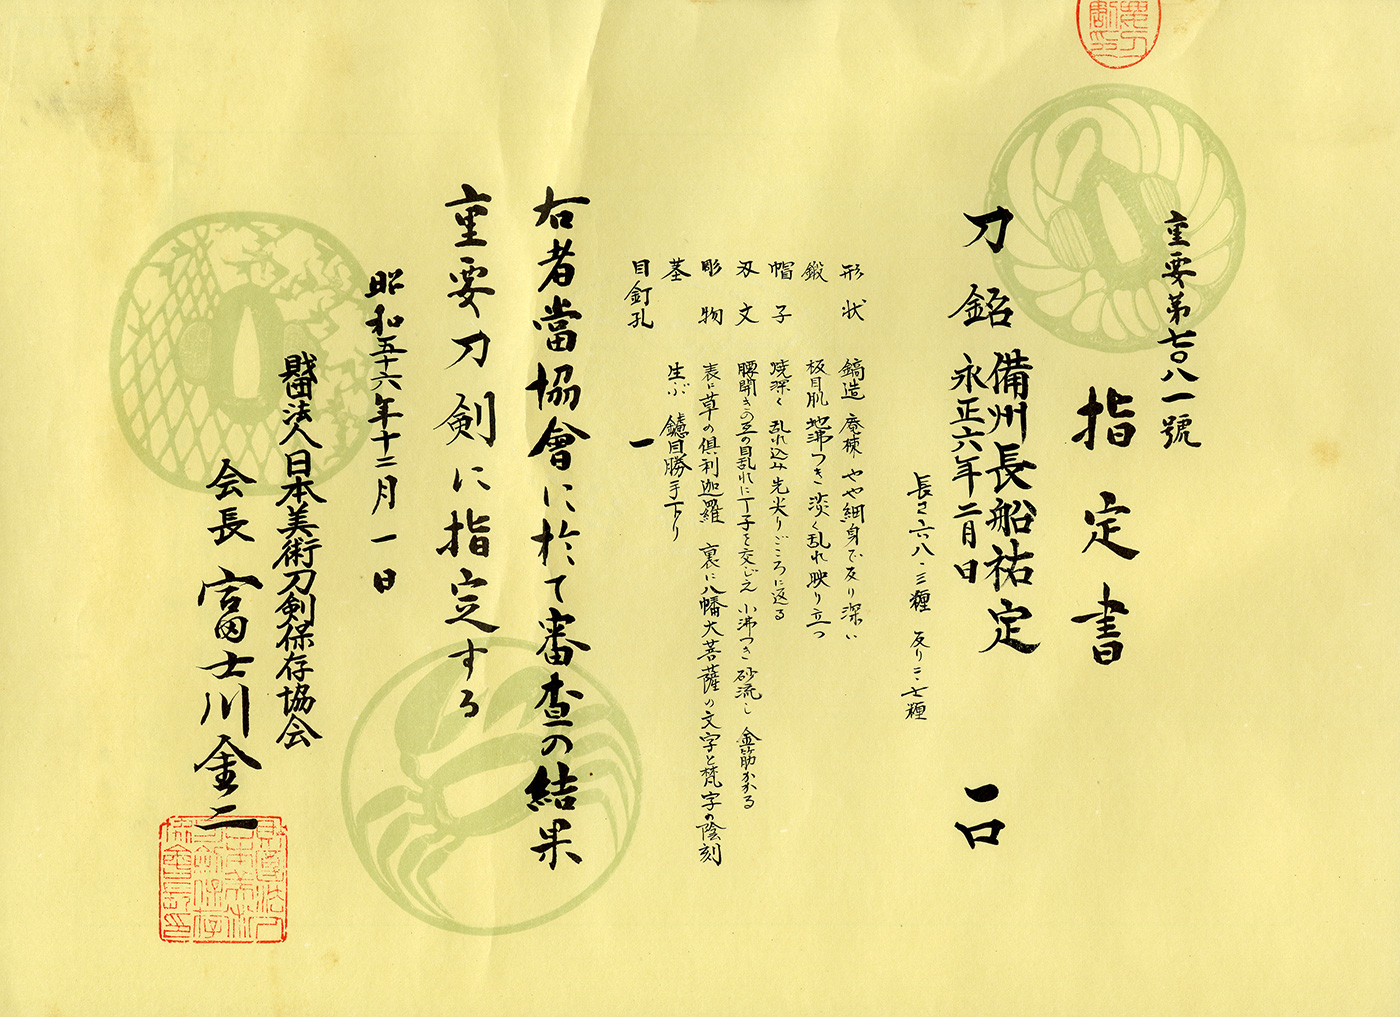 重要第七〇八一號
指定書
刀 銘 備州長船祐定
永正六年二月日
一口
長さ六八・三糎 反り二・七糎
形状 鎬造 庵棟 やや細身で反り深い
鍛 板目肌 地沸つき 淡く乱れ映り立つ
帽子 焼深く 乱れ込み 先尖りごころに返る
刃文 腰開きの互の目乱れに丁子を交じえ 小沸つき 砂流し 金筋かかる
彫物 表に草の倶利迦羅 裏に八幡大菩薩の文字と梵字の陰刻
茎 生ぶ 鑢目勝手下り
目釘孔 一
右者當協會に於て審査の結果
重要刀剣に指定する
昭和五十六年十二月一日
財団法人日本美術刀剣保存協会
会長 富士川金二